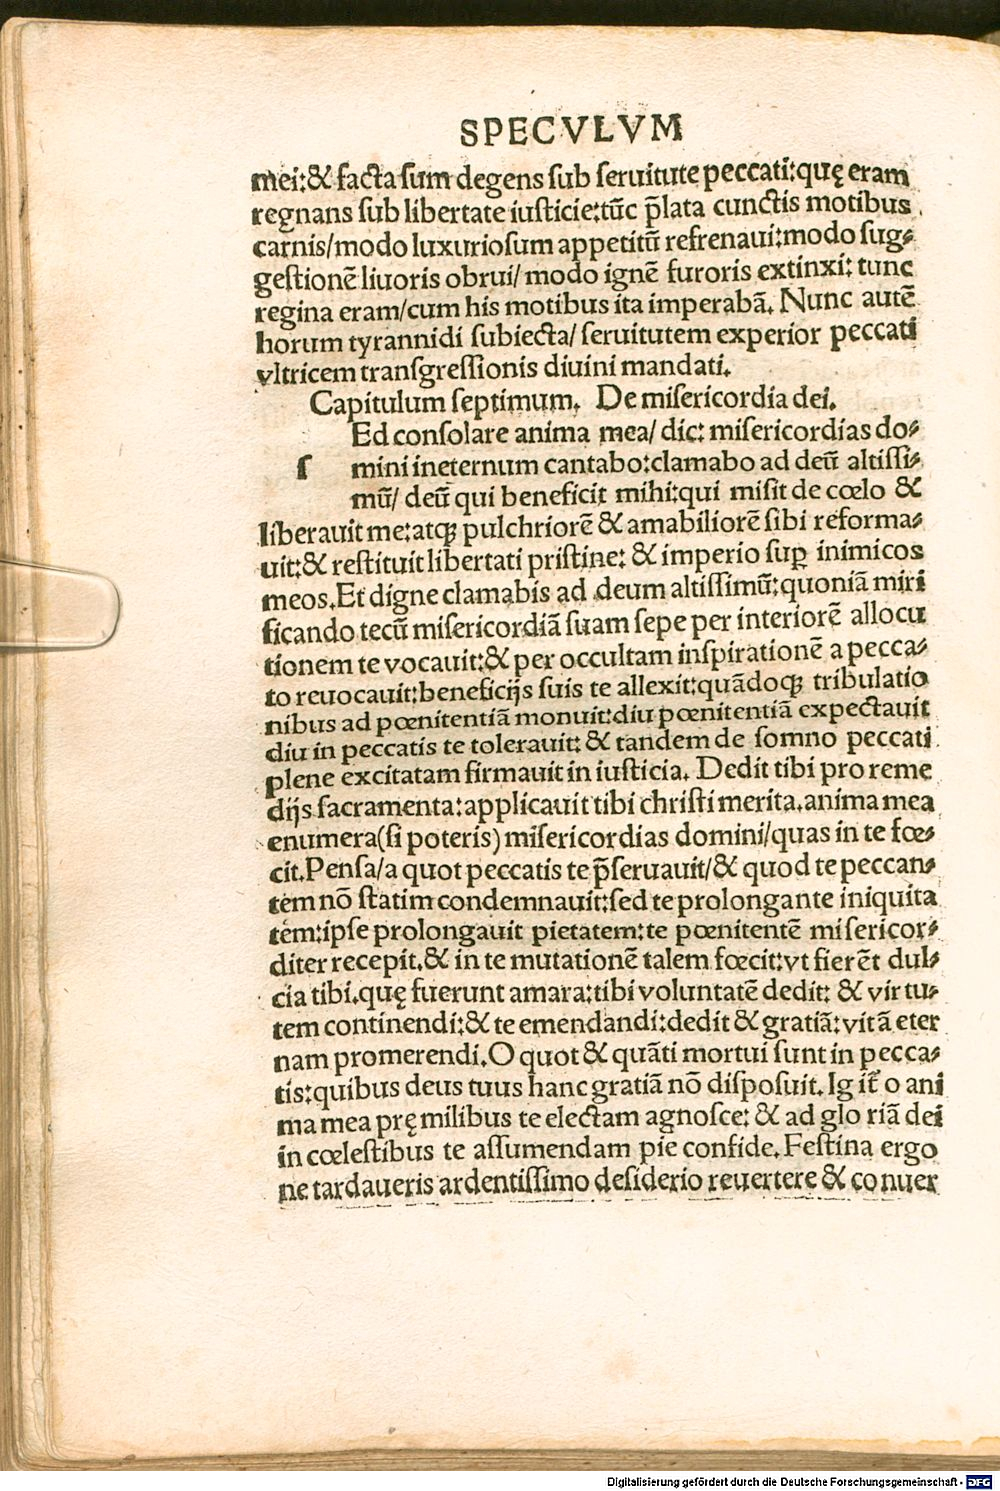 SPECVLVM
mei:& facta sum degens sub seruitute peccati:quę eram
regnans sub libertate iusticie:tūc p̄lata cunctis motibus
carnis/modo luxuriosum appetitū refrenaui:modo sug⸗
gestionē liuoris obrui/ modo ignē furoris extinxi: tunc
regina eram/cum his motibus ita imperabā. Nunc autē
horum tyrannidi subiecta/ seruitutem experior peccati
vltricem transgressionis diuini mandati.
Capitulum septimum. De misericordia dei.
Ed consolare anima mea/ dic: misericordias do⸗
s mini ineternum cantabo:clamabo ad deū altissi⸗
mū/ deū qui beneficit mihi:qui misit de cœlo &
liberauit me:atqꝫ pulchriorē & amabiliorē sibi reforma⸗
uit:& restituit libertati pristine: & imperio suꝑ inimicos
meos.Et digne clamabis ad deum altissimū:quoniā miri
ficando tecū misericordiā suam sepe per interiorē allocu
tionem te vocauit:& per occultam inspirationē a pecca⸗
to reuocauit:beneficijs suis te allexit:quādoqꝫ tribulatio
nibus ad pœnitentiā monuit:diu pœnitentiā expectauit
diu in peccatis te tolerauit: & tandem de somno peccati
plene excitatam firmauit in iusticia. Dedit tibi pro reme
dijs sacramenta:applicauit tibi christi merita.anima mea
enumera(si poteris) misericordias domini/quas in te fœ⸗
cit.Pensa/a quot peccatis te p̄seruauit/& quod te peccan⸗
tem nō statim condemnauit:sed te prolongante iniquita
tem:ipse prolongauit pietatem:te pœnitentē misericor⸗
diter recepit.& in te mutationē talem fœcit:vt fierēt dul⸗
cia tibi.quę fuerunt amara:tibi voluntatē dedit: & virtu⸗
tem continendi:& te emendandi:dedit & gratiā:vitā eter
nam promerendi.O quot & quāti mortui sunt in pecca⸗
tis:quibus deus tuus hanc gratiā nō disposuit.Igit̃ o ani
ma mea prę milibus te electam agnosce: & ad gloriā dei
in cœlestibus te assumendam pie confide.Festina ergo
ne tardaueris ardentissimo desiderio reuertere & conuer
Digitalisierung gefördert durch die Deutsche Forschungsgemeinschaft - DFG